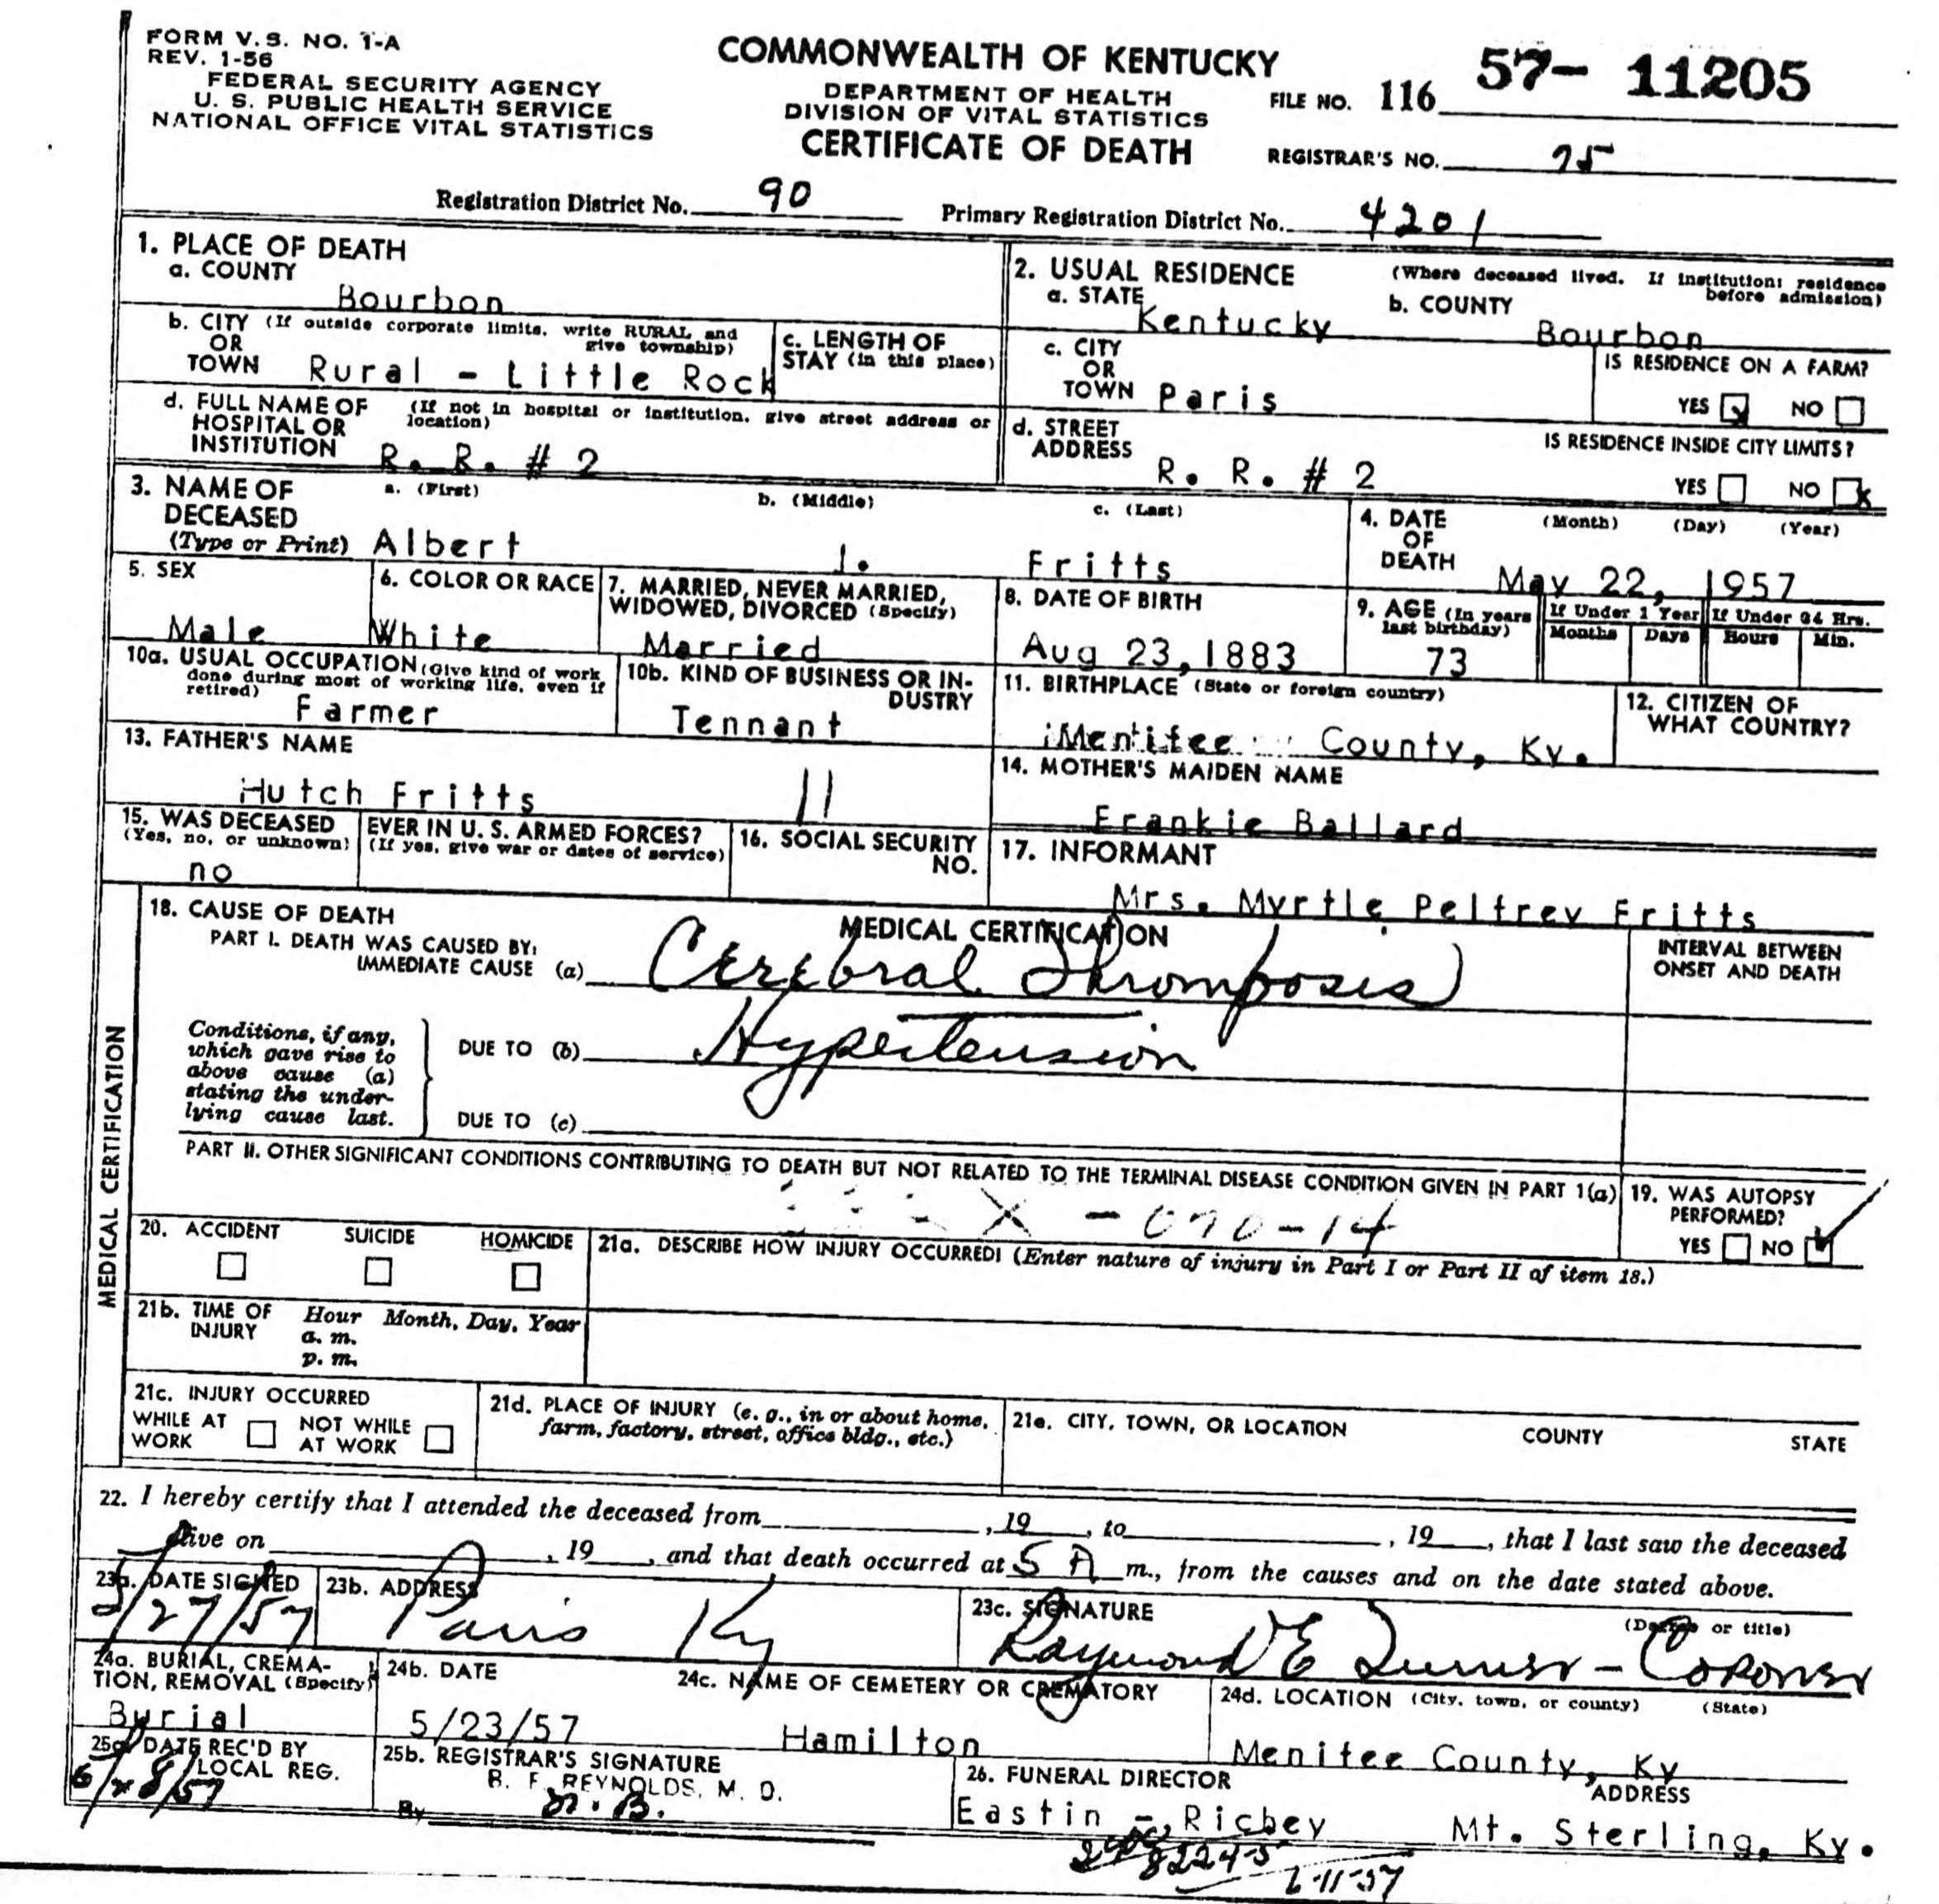 FORM V.S. NO. 1-A
REV. 1-56
FEDERAL SECURITY AGENCY
U. S. PUBLIC HEALTH SERVICE
NATIONAL OFFICE VITAL STATISTICS
COMMONWEALTH OF KENTUCKY
DEPARTMENT OF HEALTH
DIVISION OF VITAL STATISTICS
CERTIFICATE OF DEATH
FILE NO. 116 57- 11205
REGISTRAR'S NO. 75
Registration District No. 90 Primary Registration District No. 4201
1. PLACE OF DEATH
a. COUNTY
Bourbon
b. CITY (If outside corporate limits, write RURAL and give township)
OR
TOWN Rural - Little Rock
c. LENGTH OF STAY (in this place)
d. FULL NAME OF HOSPITAL OR INSTITUTION (If not in hospital or institution, give street address or location)
R. R. # 2
2. USUAL RESIDENCE (Where deceased lived. If institution: residence before admission)
a. STATE Kentucky b. COUNTY Bourbon
c. CITY OR TOWN Paris
IS RESIDENCE ON A FARM?
YES x NO
d. STREET ADDRESS R. R. # 2
IS RESIDENCE INSIDE CITY LIMITS?
YES NO x
3. NAME OF DECEASED (Type or Print)
a. (First) b. (Middle) c. (Last)
Albert J. Fritts
4. DATE OF DEATH (Month) (Day) (Year)
May 22, 1957
5. SEX
Male
6. COLOR OR RACE
White
7. MARRIED, NEVER MARRIED, WIDOWED, DIVORCED (Specify)
Married
8. DATE OF BIRTH
Aug 23, 1883
9. AGE (In years last birthday)
73
If Under 1 Year If Under 24 Hrs.
Months Days Hours Min.
10a. USUAL OCCUPATION (Give kind of work done during most of working life, even if retired)
Farmer
10b. KIND OF BUSINESS OR INDUSTRY
Tennant
11. BIRTHPLACE (State or foreign country)
Menifee County, Ky.
12. CITIZEN OF WHAT COUNTRY?
13. FATHER'S NAME
Hutch Fritts
14. MOTHER'S MAIDEN NAME
Frankie Ballard
15. WAS DECEASED EVER IN U. S. ARMED FORCES?
(Yes, no, or unknown) (If yes, give war or dates of service)
no
16. SOCIAL SECURITY NO.
17. INFORMANT
Mrs. Myrtle Pelfrey Fritts
MEDICAL CERTIFICATION
18. CAUSE OF DEATH
MEDICAL CERTIFICATION
PART I. DEATH WAS CAUSED BY:
IMMEDIATE CAUSE (a) Cerebral Thrombosis
INTERVAL BETWEEN ONSET AND DEATH
Conditions, if any, which gave rise to above cause (a) stating the underlying cause last.
DUE TO (b) Hypertension
DUE TO (c)
PART II. OTHER SIGNIFICANT CONDITIONS CONTRIBUTING TO DEATH BUT NOT RELATED TO THE TERMINAL DISEASE CONDITION GIVEN IN PART 1(a)
X - 070-14
19. WAS AUTOPSY PERFORMED?
YES NO
20. ACCIDENT SUICIDE HOMICIDE
21a. DESCRIBE HOW INJURY OCCURRED! (Enter nature of injury in Part I or Part II of item 18.)
21b. TIME OF INJURY Hour Month, Day, Year
a. m.
p. m.
21c. INJURY OCCURRED
WHILE AT WORK NOT WHILE AT WORK
21d. PLACE OF INJURY (e. g., in or about home, farm, factory, street, office bldg., etc.)
21e. CITY, TOWN, OR LOCATION COUNTY STATE
22. I hereby certify that I attended the deceased from , 19 , to , 19 , that I last saw the deceased
alive on , 19 , and that death occurred at 5 A m., from the causes and on the date stated above.
23a. DATE SIGNED
5/27/57
23b. ADDRESS
Paris Ky
23c. SIGNATURE (Degree or title)
Raymond E Turner - Coroner
24a. BURIAL, CREMATION, REMOVAL (Specify)
Burial
24b. DATE
5/23/57
24c. NAME OF CEMETERY OR CREMATORY
Hamilton
24d. LOCATION (City, town, or county) (State)
Menifee County, Ky
25a. DATE REC'D BY LOCAL REG.
25b. REGISTRAR'S SIGNATURE
B. F. REYNOLDS, M. D.
By
26. FUNERAL DIRECTOR ADDRESS
Eastin - Richey Mt. Sterling, Ky.